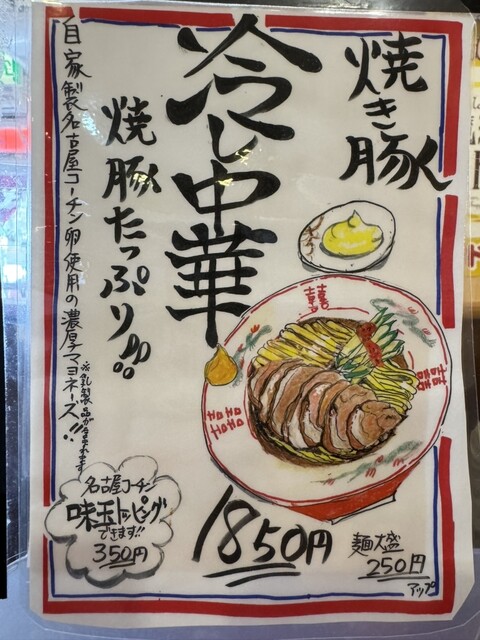 焼き豚
冷し中華
焼豚たっぷり
自家製名古屋コーチン卵使用の濃厚マヨネーズ!!
囍
名古屋コーチン
味玉トッピング
できます!!
350円
1850円
麺大盛
250円
アップ